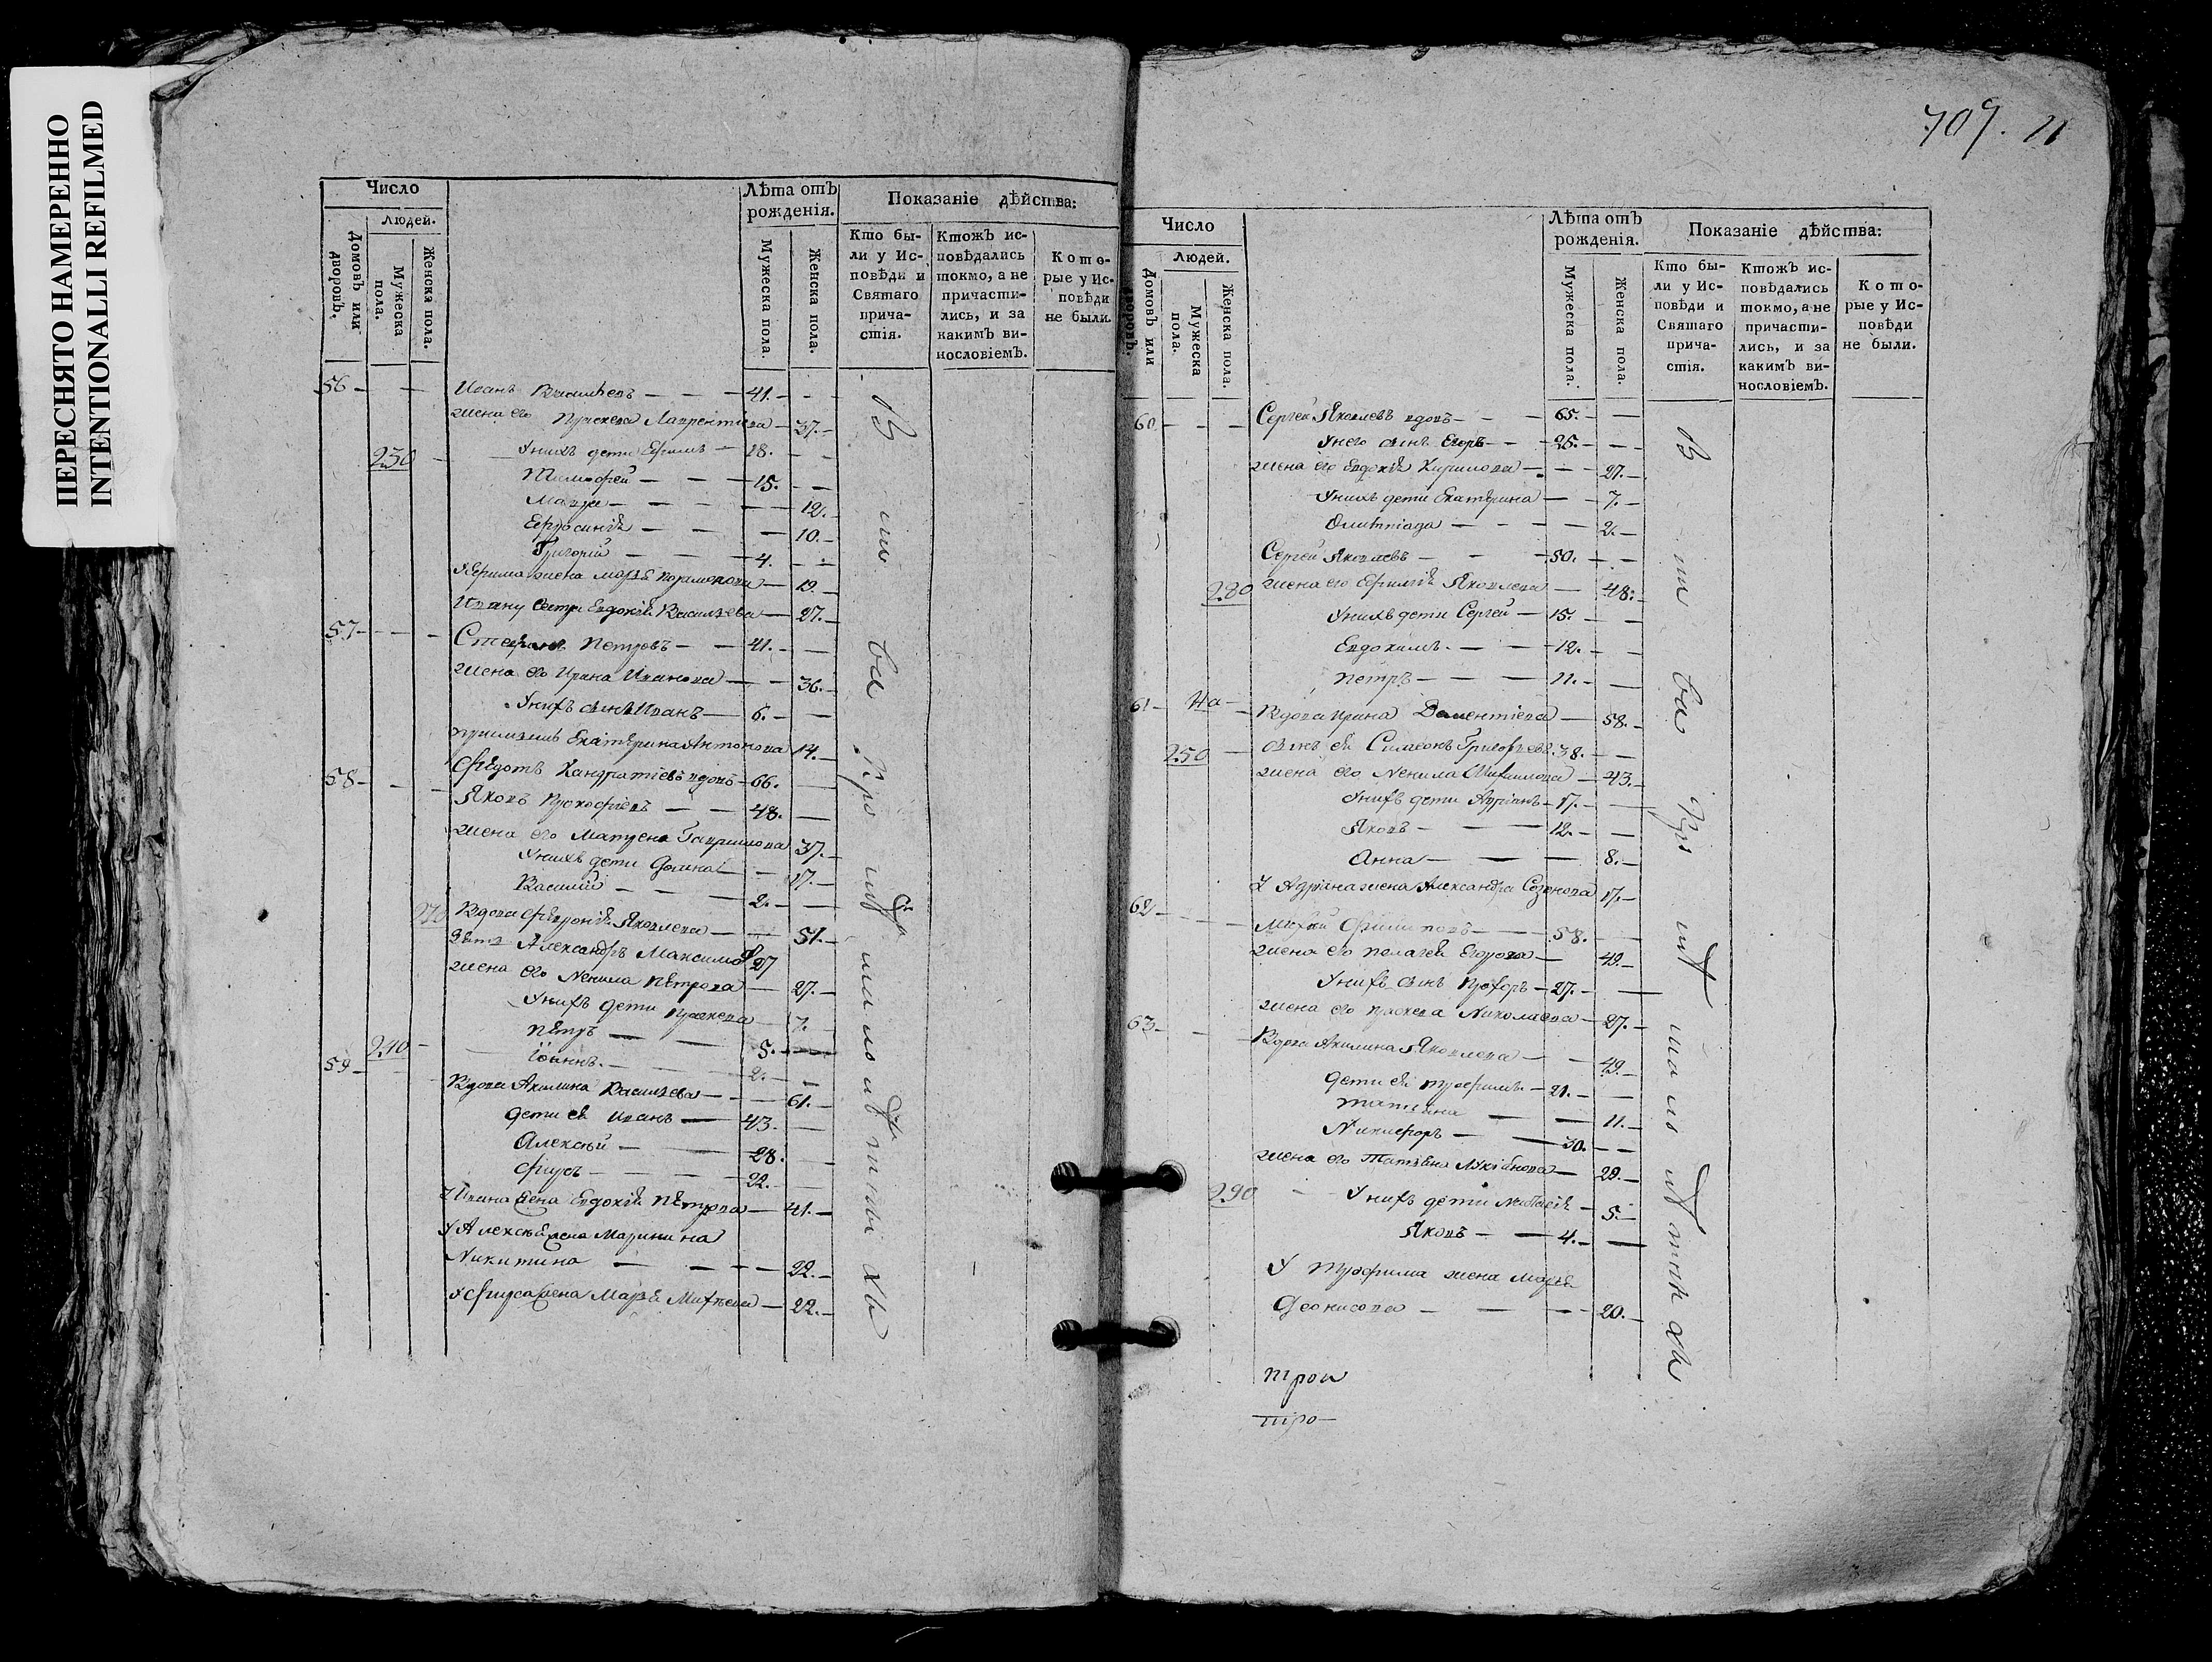 ПЕРЕСНЯТО НАМЕРЕННО
INTENTIONALLI REFILMED
Число
Людей.
Домовъ или дворовъ.
Мужеска пола.
Женска пола.
Лѣта отъ рожденія.
Мужеска пола.
Женска пола.
Показаніе дѣйства:
Кто бы-
ли у Ис-
повѣди и
Святаго
прича-
стія.
Ктожъ ис-
повѣдались
токмо, а не
причасти-
лись, и за
какимъ ви-
нословіемъ.
Кото-
рые у Ис-
повѣди
не были.
56 Иванъ Васильевъ 41.
жена его Праскева Лаврентіева 37.
230 У нихъ дети Ефимъ 18.
Тимофей 15.
Мавра 12.
Ефросинія 10.
Григорий 4.
У Ефима жена Марья 19.
Ивану сестра Евдокія Васильева 27.
57 Стефанъ Петровъ 41.
жена его Ирина Иванова 36.
У нихъ сынъ Иванъ 6.
Екатерина Антонова 14.
58 Федотъ Кандратіевъ вдовъ 66.
Яковъ Прокофіевъ 48.
жена его Матрена Гаврилова 37.
У нихъ дети Домна 17.
Василий 2.
270 Вдова Февронія Яковлева 51.
Зять Александръ Максимов 27
жена его Ненила Петрова 27.
У нихъ дети Праскева 7.
Петръ 5.
240 Іоаннъ 2.
59 Вдова Акилина Васильева 61.
дети ея Иванъ 43.
Алексѣй 28.
Фирсъ 22.
У Ивана жена Евдокія Петрова 41.
У Алексѣя жена
Никитина 22.
У Фирса жена Марья 22.
709. 11
Число
Людей.
Домовъ или дворовъ.
Мужеска пола.
Женска пола.
Лѣта отъ рожденія.
Мужеска пола.
Женска пола.
Показаніе дѣйства:
Кто бы-
ли у Ис-
повѣди и
Святаго
прича-
стія.
Ктожъ ис-
повѣдались
токмо, а не
причасти-
лись, и за
какимъ ви-
нословіемъ.
Кото-
рые у Ис-
повѣди
не были.
60 Сергей Яковлевъ вдовъ 65.
У него сынъ Егоръ 25.
жена его Евдокія Кирилова 27.
У нихъ дети Екатерина 7.
Олимпіада 2.
Сергей Яковлевъ 50.
280 жена его Ефимія Яковлева 48.
У нихъ дети Сергей 15.
Евдокимъ 12.
Петръ 11.
61 Вдова Ирина 58.
250 сынъ ея Симеонъ Григорьевъ 38.
жена его Ненила 43.
У нихъ дети Адріанъ 17.
Яковъ 12.
Анна 8.
У Адріана жена Александра Созонова 17.
62 Филиповъ 58.
жена его Пелагея Егорова 49.
У нихъ сынъ Прохоръ 27.
жена его Праскева Николаева 27.
63 Вдова Акилина Яковлева 49.
дети ея Трофимъ 21.
Татьяна 11.
Никифоръ 30.
жена его Татьяна 29.
290 У нихъ дети 5.
Яковъ 4.
У Трофима жена Марья
Деонисова 20.
трои
про